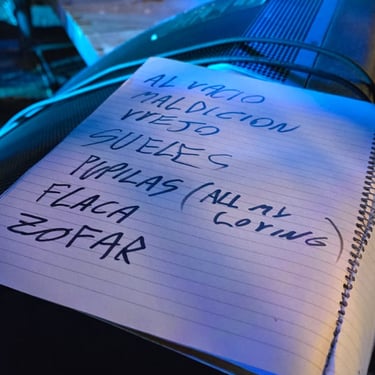 AL VACIO
MALDICION
VIEJO
SUELES
PUPILAS (ALL MY LOVING)
FLACA
ZOFAR